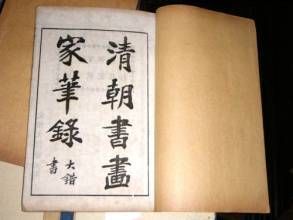 清朝書畫
家筆錄
大鍇書